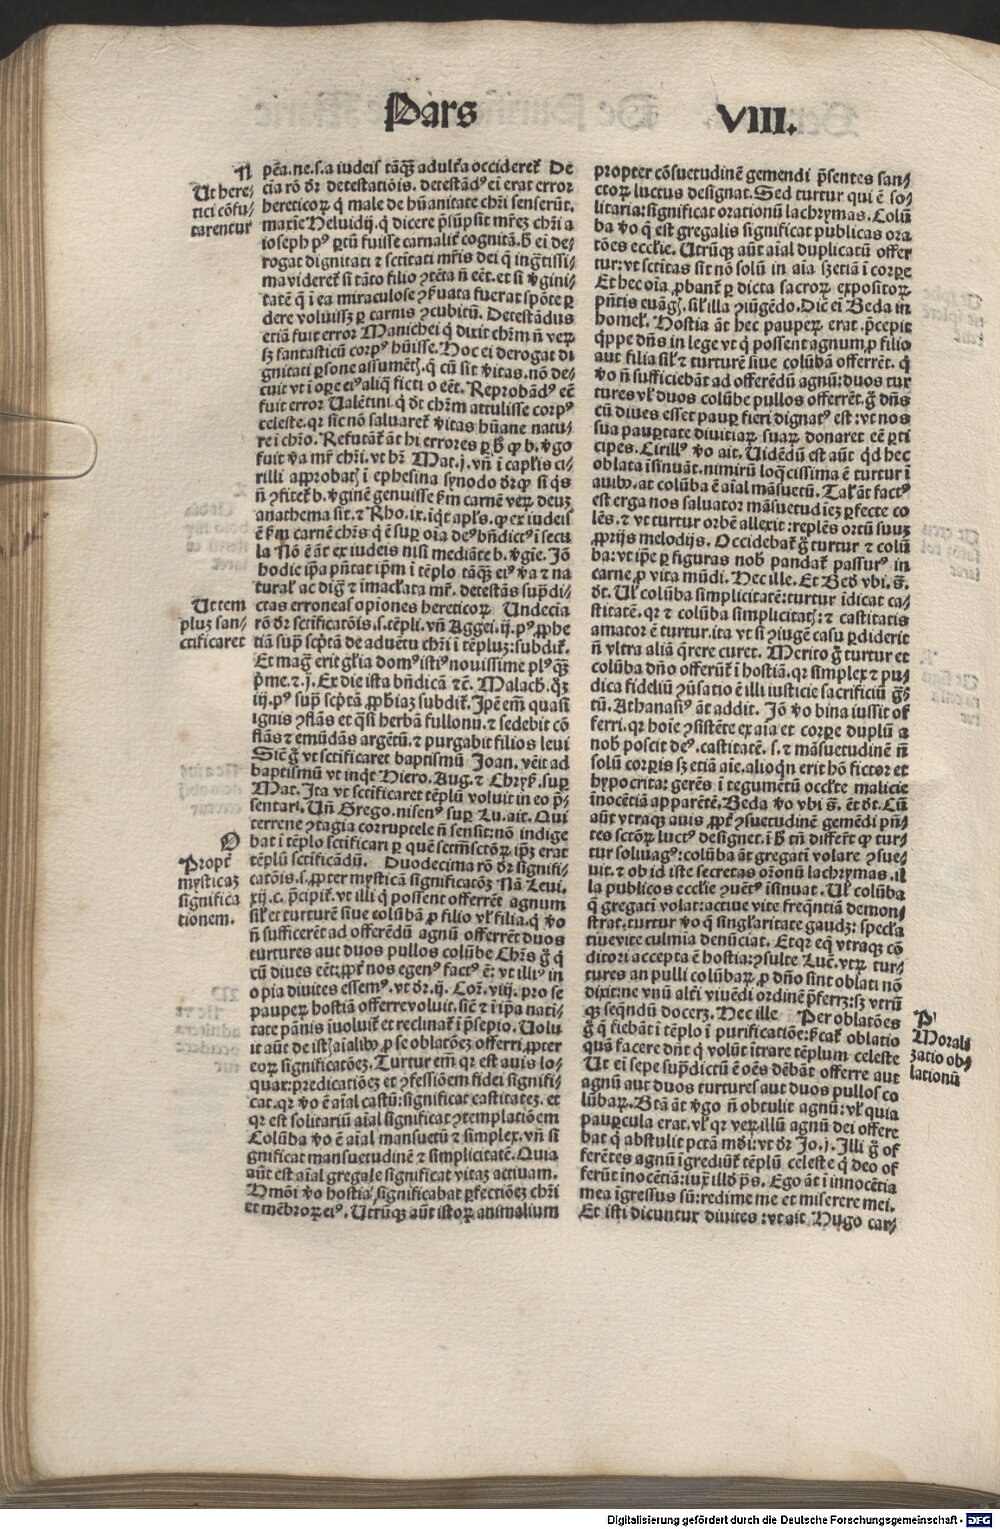 Pars VIII.
N
Ut here⸗
tici cōfu⸗
tarentur
pēa.ne.s.a iudeis tāq̄ȝ adulťa occidereť De
cia rō dr̄ detestatiōis. detestād⁹ ei erat error
hereticoꝝ q̄ male de hūanitate chr̄i senserūt.
maxie Heluidij.q̇ dicere p̄sūpsit mr̄eȝ chr̄i a
ioseph p⁹ ꝑtū fuisse carnaliť cognitā.ħ ei de⸗
rogat dignitati ⁊ scītati mr̄is dei q̄ ingētissi⸗
ma videreť si tāto filio ꝯtēta nō eēt.et si v̇gini⸗
tatē q̄ i ea miraculose ꝯẜuata fuerat spōte ꝑ
dere voluissȝ ꝑ carnis ꝯcubitū. Detestādus
etiā fuit error Manichei q̇ dixit chr̄m nō veꝝ
sȝ fantasticū corp⁹ hūisse. Hoc ei derogat di
gnitati ꝑsone assumētꝭ.q̄ cū sit v̇itas.nō de⸗
cuit vt i oꝑe ei⁹ aliq̇ ficti o eēt. Reprobād⁹ eē
fuit error Ualētini.q̇ dt̄ chr̄m attulisse corp⁹
celeste.qr sic nō saluareť v̇itas hūane natu⸗
re i chr̄o. Refutāť āt hi errores ꝑ ħ ꝙ b. v̇go
fuit v̇a mr̄ chr̄i. vt hr̄ Mat.j. vn̄ i capl̄is ci⸗
rilli approbatꝭ ī ephesina synodo dr̄ꝙ si q̇s
nō ꝯfiteť b. v̇ginē genuisse ẜm carnē veꝝ deuȝ
anathema sit.⁊ Rho.ix.iq̇t apl̄s. ꝙ ex iudeis
ē ẜm carnē chr̄s q̇ ē suꝑ oīa de⁹ bn̄dict⁹ i secu
la Nō ē āt ex iudeis nisi mediāte b. v̇gie. Jō
hodie ip̄a pn̄tat ip̄m ī tēplo tāq̄ȝ ei⁹ v̇a ⁊ na
turał ac dig̅ ⁊ imaclata mr̄. detestās sup̄di⸗
ctas erroneas opiones hereticoꝝ Undecia
Ut tem
pluȝ san⸗
ctificaret
rō dr̄ sctificatōis.s.tēpli. vn̄ Aggei.ij.p⁹ ꝓphe
tiā sup̄ scp̄tā de aduētu chr̄i ī tēpluȝ: subdiť.
Et mag̅ erit gl̄ia dom⁹ isti⁹ nouissime pl⁹ q̄ȝ
p̄me.⁊.j. Ex die ista bn̄dicā ⁊c̄. Malach. q̄ȝ
iij.p⁹ sup̄ scp̄tā ꝓphiaȝ subdiť. Jp̄e em̄ quasi
ignis ꝯflās et q̄si herbā fullonū.⁊ sedebit cō
flās ⁊ emūdās argētū.⁊ purgabit filios leui
Sic ē g̅ vt sctificaret baptismū Joan. vēit ad
baptismū vt inq̇t Hiero. Aug.⁊ Chryẜ. suꝑ
Mat. Jta vt sctificaret tēplū voluit in eo p̄⸗
sentari. Un̄ Grego.nisen⁹ suꝑ Lu.ait. Qui
terrene ꝯtagia corruptele nō sensit:nō indige
O
Propť
mysticaȝ
significa
tionem.
bat i tēplo sctificari ꝑ quē sctm̄sctōꝝ ip̄ȝ erat
tēplū sctificādū. Duodecima rō dr̄ signifi⸗
catōis.s.ꝓpter mysticā significatōȝ Nā Levi.
xij.c. p̄cipiť. vt illi q̇ possent offerrēt agnum
siľ et turturē siue colūbā ꝓ filio vľ filia.q̇ v̇o
nō sufficerēt ad offerēdū agnū offerrēt duos
turtures aut duos pullos colūbe Chr̄s g̅ q̇
cū diues eēt:ꝓpť nos egen⁹ fact⁹ ē: vt illi⁹ in
opia diuites essem⁹. vt dr̄.ij. Cor̄. viij.pro se
pauperꝝ hostiā offerre voluit.sic ē ⁊ i ip̄a nati⸗
tate pānis īuoluiť et reclinať i p̄sepio. Uolu
it aūt de istꝭ aialibꝰ ꝓ se oblatōeȝ offerri ꝓpter
eoꝝ significatōeȝ. Turtur em̄ qr est auis lo⸗
quax:predicatiōeȝ et ꝯfessiōem fidei signifi⸗
cat.qr v̇o ē aīal castū:significat castitateȝ.et
qr est solitariū aīal significat ꝯtemplatiōem
Colūba v̇o ē aīal mansuetū ⁊ simplex.vn̄ si
gnificat mansuetudinē ⁊ simplicitatē. Quia
aūt est aīal gregale significat vitaȝ actiuam.
Hmōi v̇o hostia significabat ꝑfectiōeȝ chr̄i
et mēbroꝝ ei⁹. Utrūqȝ aūt istoꝝ animalium
propter cōsuetudinē gemendi p̄sentes san⸗
ctoꝝ luctus designat. Sed turtur qui ē so⸗
litaria:significat orationū lachrymas. Colū
ba v̇o q̄ est gregalis significat publicas ora
tōes eccľie. Utrūqȝ aūt aīal duplicatū offer
tur:vt sctitas sit nō solū in aīa sȝ etiā ī corꝑe
Et hec oīa ꝓbanť ꝑ dicta sacroꝝ expositoꝝ
pn̄tis euāg̅ꝭ. siľ illa ꝯiūgēdo. Dic̄ ei Beda in
homeľ. Hostia āt hec pauperꝝ erat. p̄cepit
q̇ppe dn̄s in lege vt q̇ possent agnum ꝓ filio
aut filia siľ ⁊ turturē siue colūbā offerrēt. q̇
v̇o nō sufficiebāt ad offerēdū agnū:duos tur
tures vľ duos colūbe pullos offerrēt.g̅ dn̄s
cū diues esset pauꝑ fieri dignat⁹ est:vt nos
sua pauꝑtate diuitiaꝝ suaꝝ donaret eē ꝑti
cipes. Cirill⁹ v̇o ait. Uidēdū est aūt qd hec
oblata īsinuāt.nimirū loq̄cissima ē turtur ī
auibꝰ.at colūba ē aīal māsuetū. Taľ āt fact⁹
est erga nos saluator māsuetudieȝ ꝑfecte co
lēs.⁊ vt turtur orbē allexit:replēs ortū suuȝ
ꝓprijs melodijs. Occidebať g̅ turtur ⁊ colū
ba:vt ip̄e ꝑ figuras nob̄ pandať passur⁹ in
carne ꝓ vita mūdi. Hec ille. Et Bed̄ vbi.s̄.
dt̄. Uľ colūba simplicitatē:turtur īdicat ca⸗
stitatē.qr ⁊ colūba simplicitatꝭ:⁊ castitatis
amator ē turtur.ita vt si ꝯiugē casu ꝑdiderit
nō vltra aliā q̄rere curet. Merito g̅ turtur et
colūba dn̄o offerūť ī hostiā.qr simplex ⁊ pu⸗
dica fideliū ꝯūsatio ē illi iusticie sacrificiū g̅⸗
tū. Athanasi⁹ āt addit. Jō v̇o bina iussit of
ferri.qr hoīe ꝯsistēte ex aīa et corꝑe duplū a
nob̄ poscit de⁹.castitatē.s.⁊ māsuetudinē nō
solū corꝑis sȝ etiā aīe.alioq̇n erit hō fictor et
hypocrita:gerēs ī tegumētū occľte malicie
īnocētiā apparētē. Beda v̇o vbi s̄. ēt dt̄. Cū
aūt vtraqȝ auis ꝓpť ꝯsuetudinē gemēdi pn̄⸗
tes sctōꝝ luct⁹ designet.ī ħ tn̄ differēt ꝙ tur⸗
tur soliuag⁹:colūba āt gregatī volare ꝯsue⸗
uit.⁊ ob id iste secretas orōnū lachrymas.il⸗
la publicos eccľie ꝯuēt⁹ īsinuat. Uľ colūba
q̄ gregatī volat:actiue vite freq̄ntiā demon⸗
strat.turtur v̇o q̄ singľaritate gaudȝ:specľa
tiue vite culmīa denūciat. Etqr eq̄ vtraqȝ cō
ditori accepta ē hostia:ꝯsulte Luc̄. vtrꝝ tur⸗
tures an pulli colūbaꝝ ꝓ dn̄o sint oblati nō
dixit:ne vnū alťi viuēdi ordinē p̄ferrȝ:sȝ vtrū
P
Morali
zatio ob⸗
lationū
qȝ seq̄ndū docerȝ. Hec ille Per oblatōes
g̅ q̄ fiebāt ī tēplo ī purificatiōe:ẜcať oblatio
quā facere dn̄t q̇ volūt ītrare tēplum celeste
Ut ei sepe sup̄dictū ē oēs dēbāt offerre aut
agnū aut duos turtures aut duos pullos co
lūbaꝝ. Btā āt v̇go nō obtulit agnū:vľ quia
paupercula erat.vľ qr veꝝ illū agnū dei offere
bat q̇ abstulit pctā mdī:vt dr̄ Jo.j. Illi g̅ of
ferētes agnū īgrediūť tēplū celeste q̇ deo of
ferūt īnocētiā:iuȝ illd̄ ps̄. Ego āt ī innocētia
mea īgressus sū:redime me et miserere mei.
Et isti dicuntur diuites:vt ait Hugo car⸗
Digitalisierung gefördert durch die Deutsche Forschungsgemeinschaft - DFG